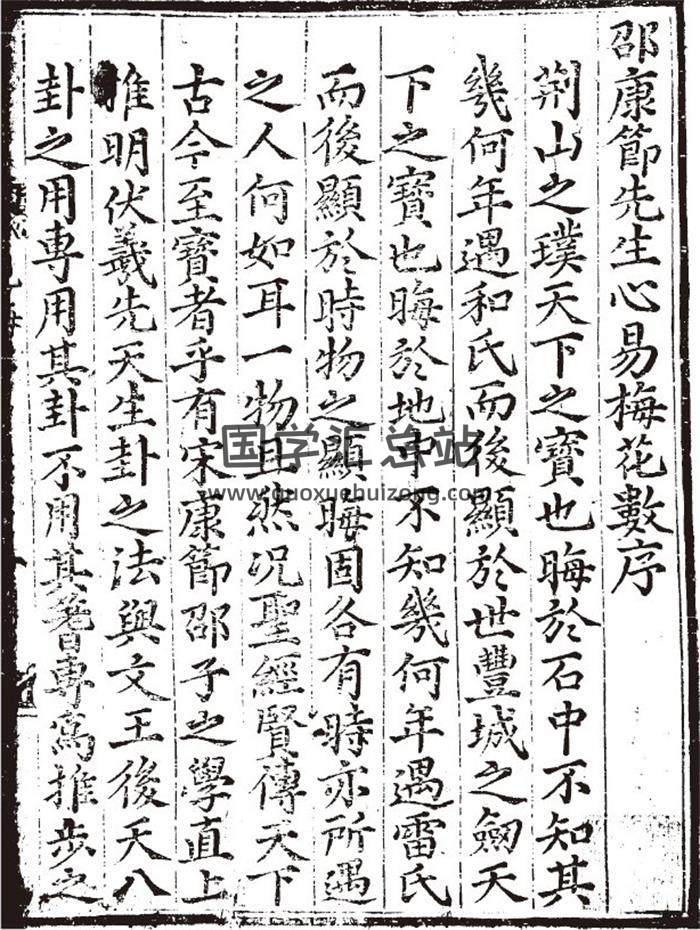 邵康節先生心易梅花數序
荆山之璞天下之寶也晦於石中不知其
幾何年遇和氏而後顯於世豐城之劒天
下之寶也晦於地中不知幾何年遇雷氏
而後顯於時物之顯晦固各有時亦所遇
之人何如耳一物且然况聖經賢傳天下
古今至寶者乎有宋康節邵子之學直上
推明伏羲先天生卦之法與文王後天八
卦之用專用其卦不用其蓍專為推步之
国学汇总站
www.guoxuehuizong.com